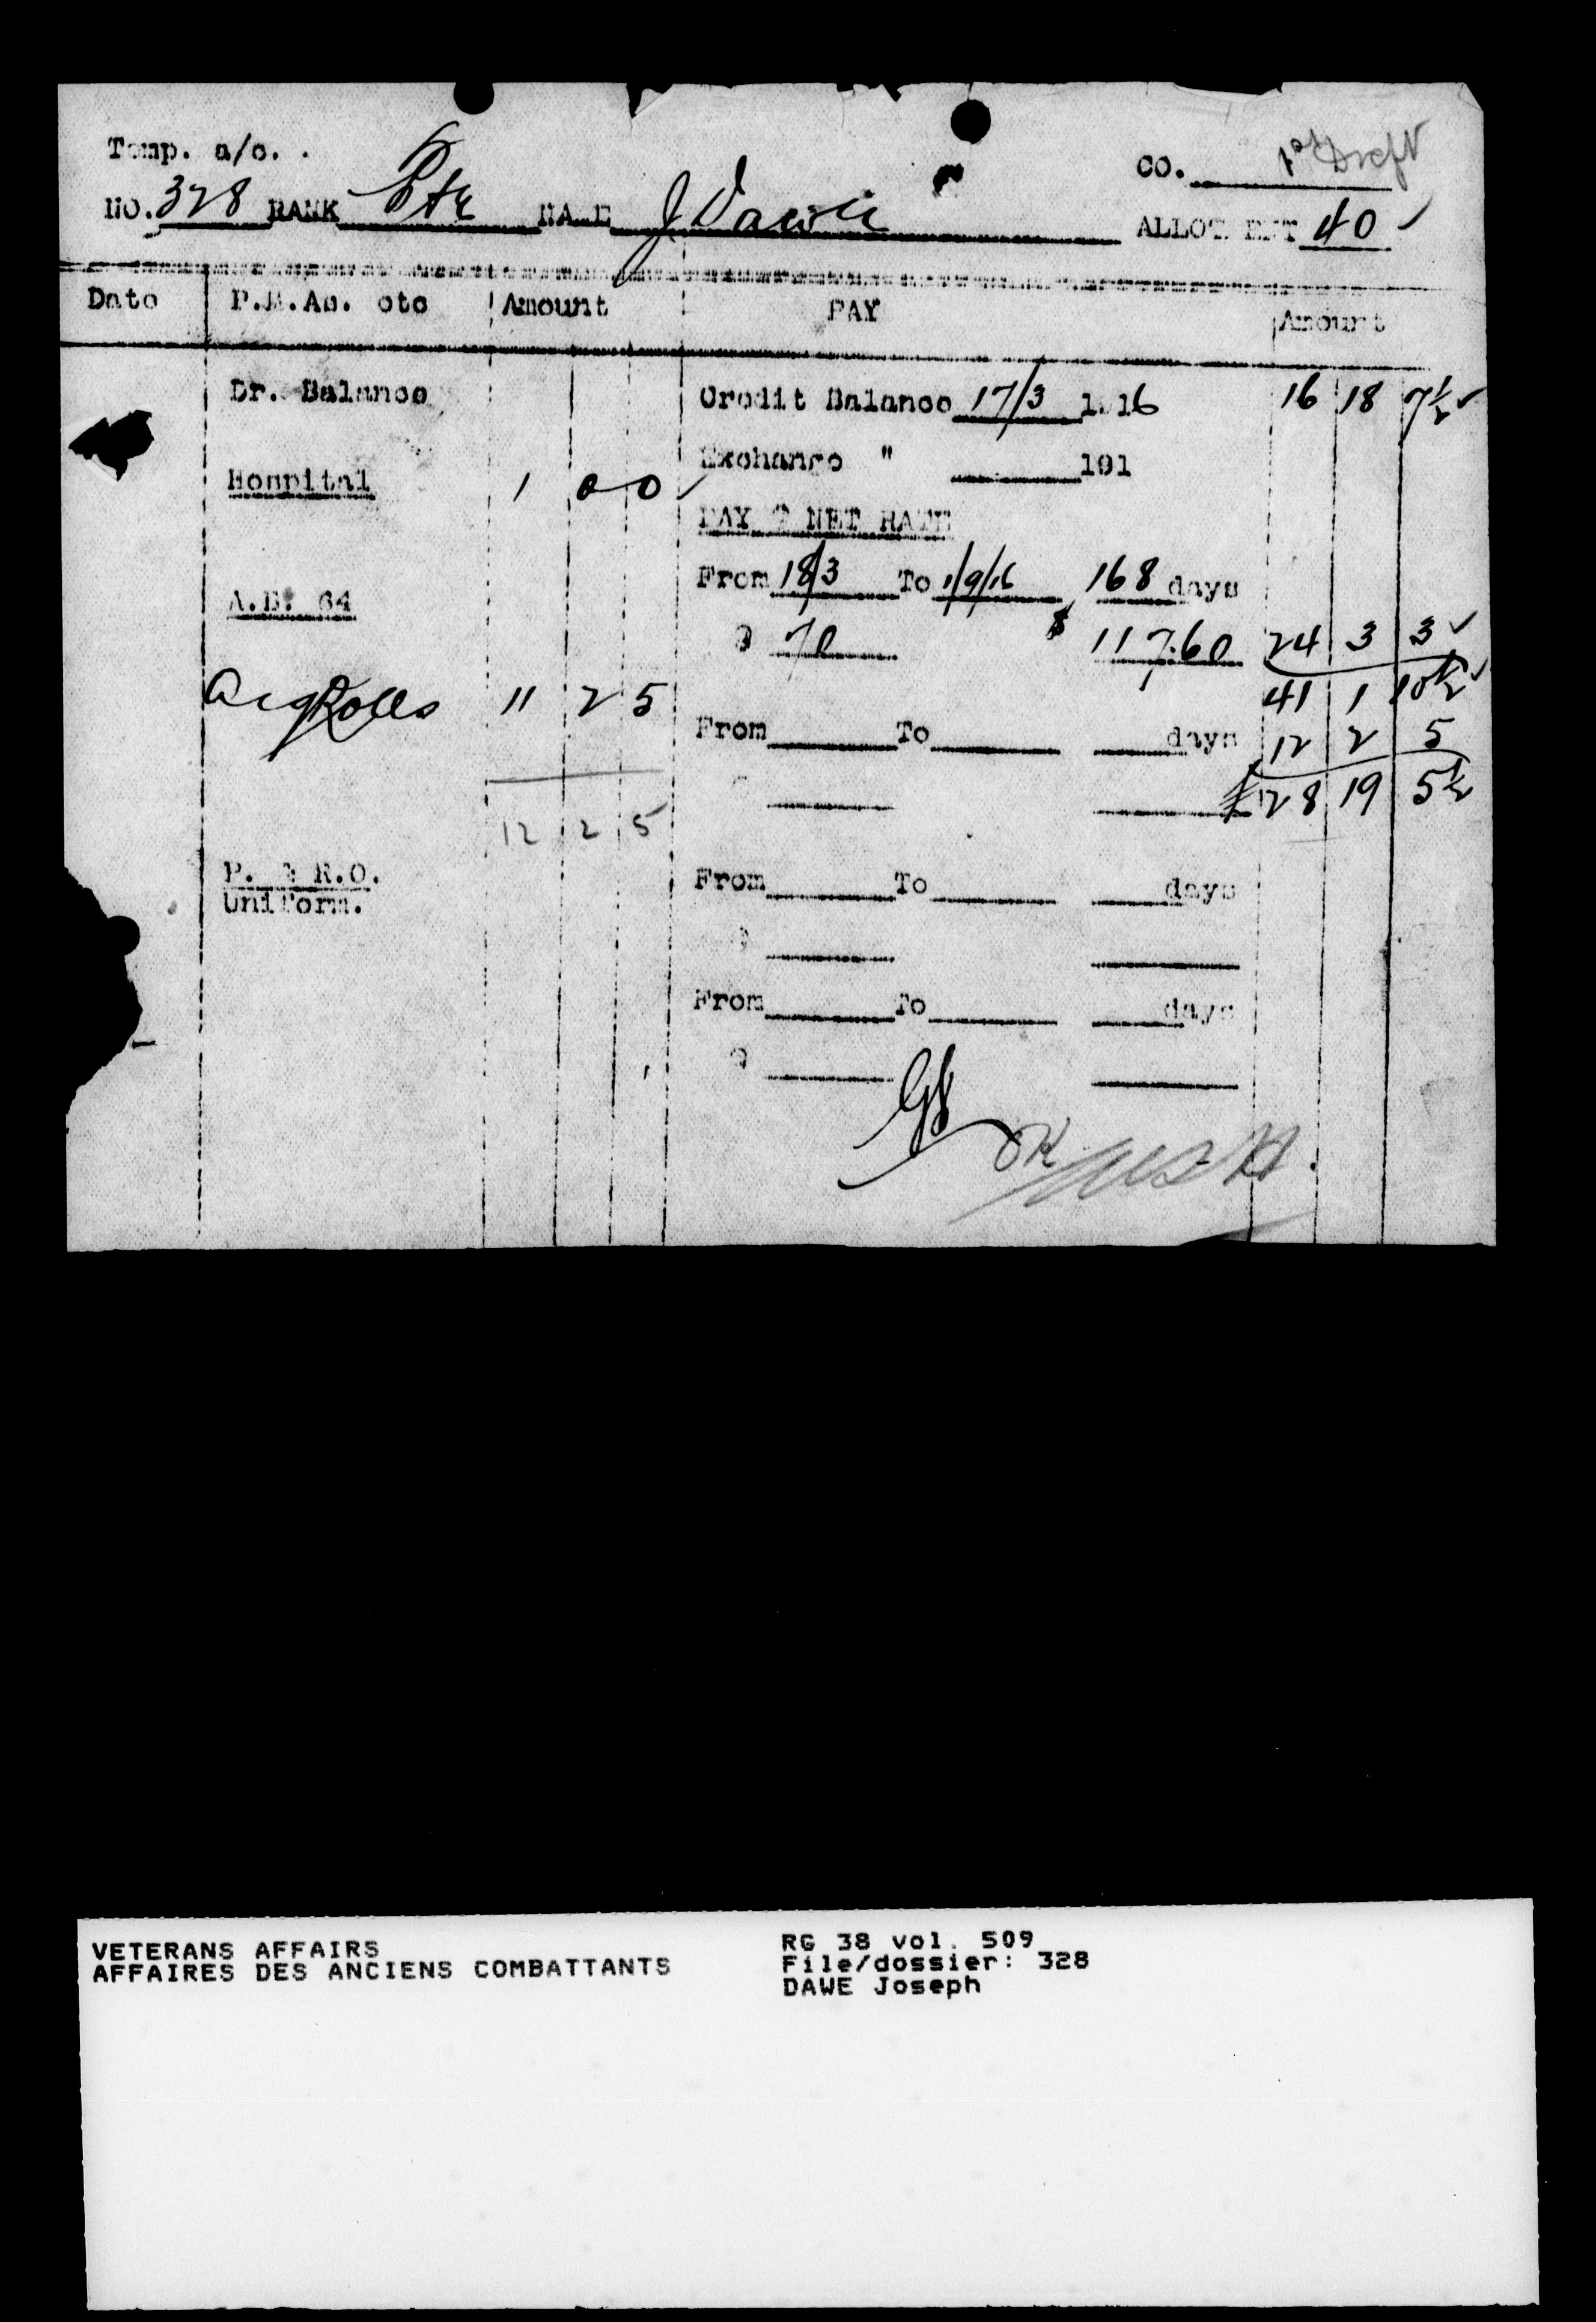 Temp. a/c. . CO. 1st Draft
NO. 328 RANK Pte NAME J Dawe ALLOTMENT 40 ✓
Date P.M.As. etc Amount PAY Amount
Dr. Balance Credit Balance 17/3 1916 16 18 7½ ✓
Hospital 1 0 0 ✓ Exchange " 191
PAY @ NET RATE
A.B. 64 From 18/3 To 1/9/16 168 days
@ 70 $117.60 24 3 3 ✓
Acq Rolls 11 2 5 41 1 10½ ✓
From To days 12 2 5
£28 19 5½
12 2 5
P. & R.O. From To days
Uniform.
@
From To days
@
OK
VETERANS AFFAIRS
AFFAIRES DES ANCIENS COMBATTANTS
RG 38 vol. 509
File/dossier: 328
DAWE Joseph